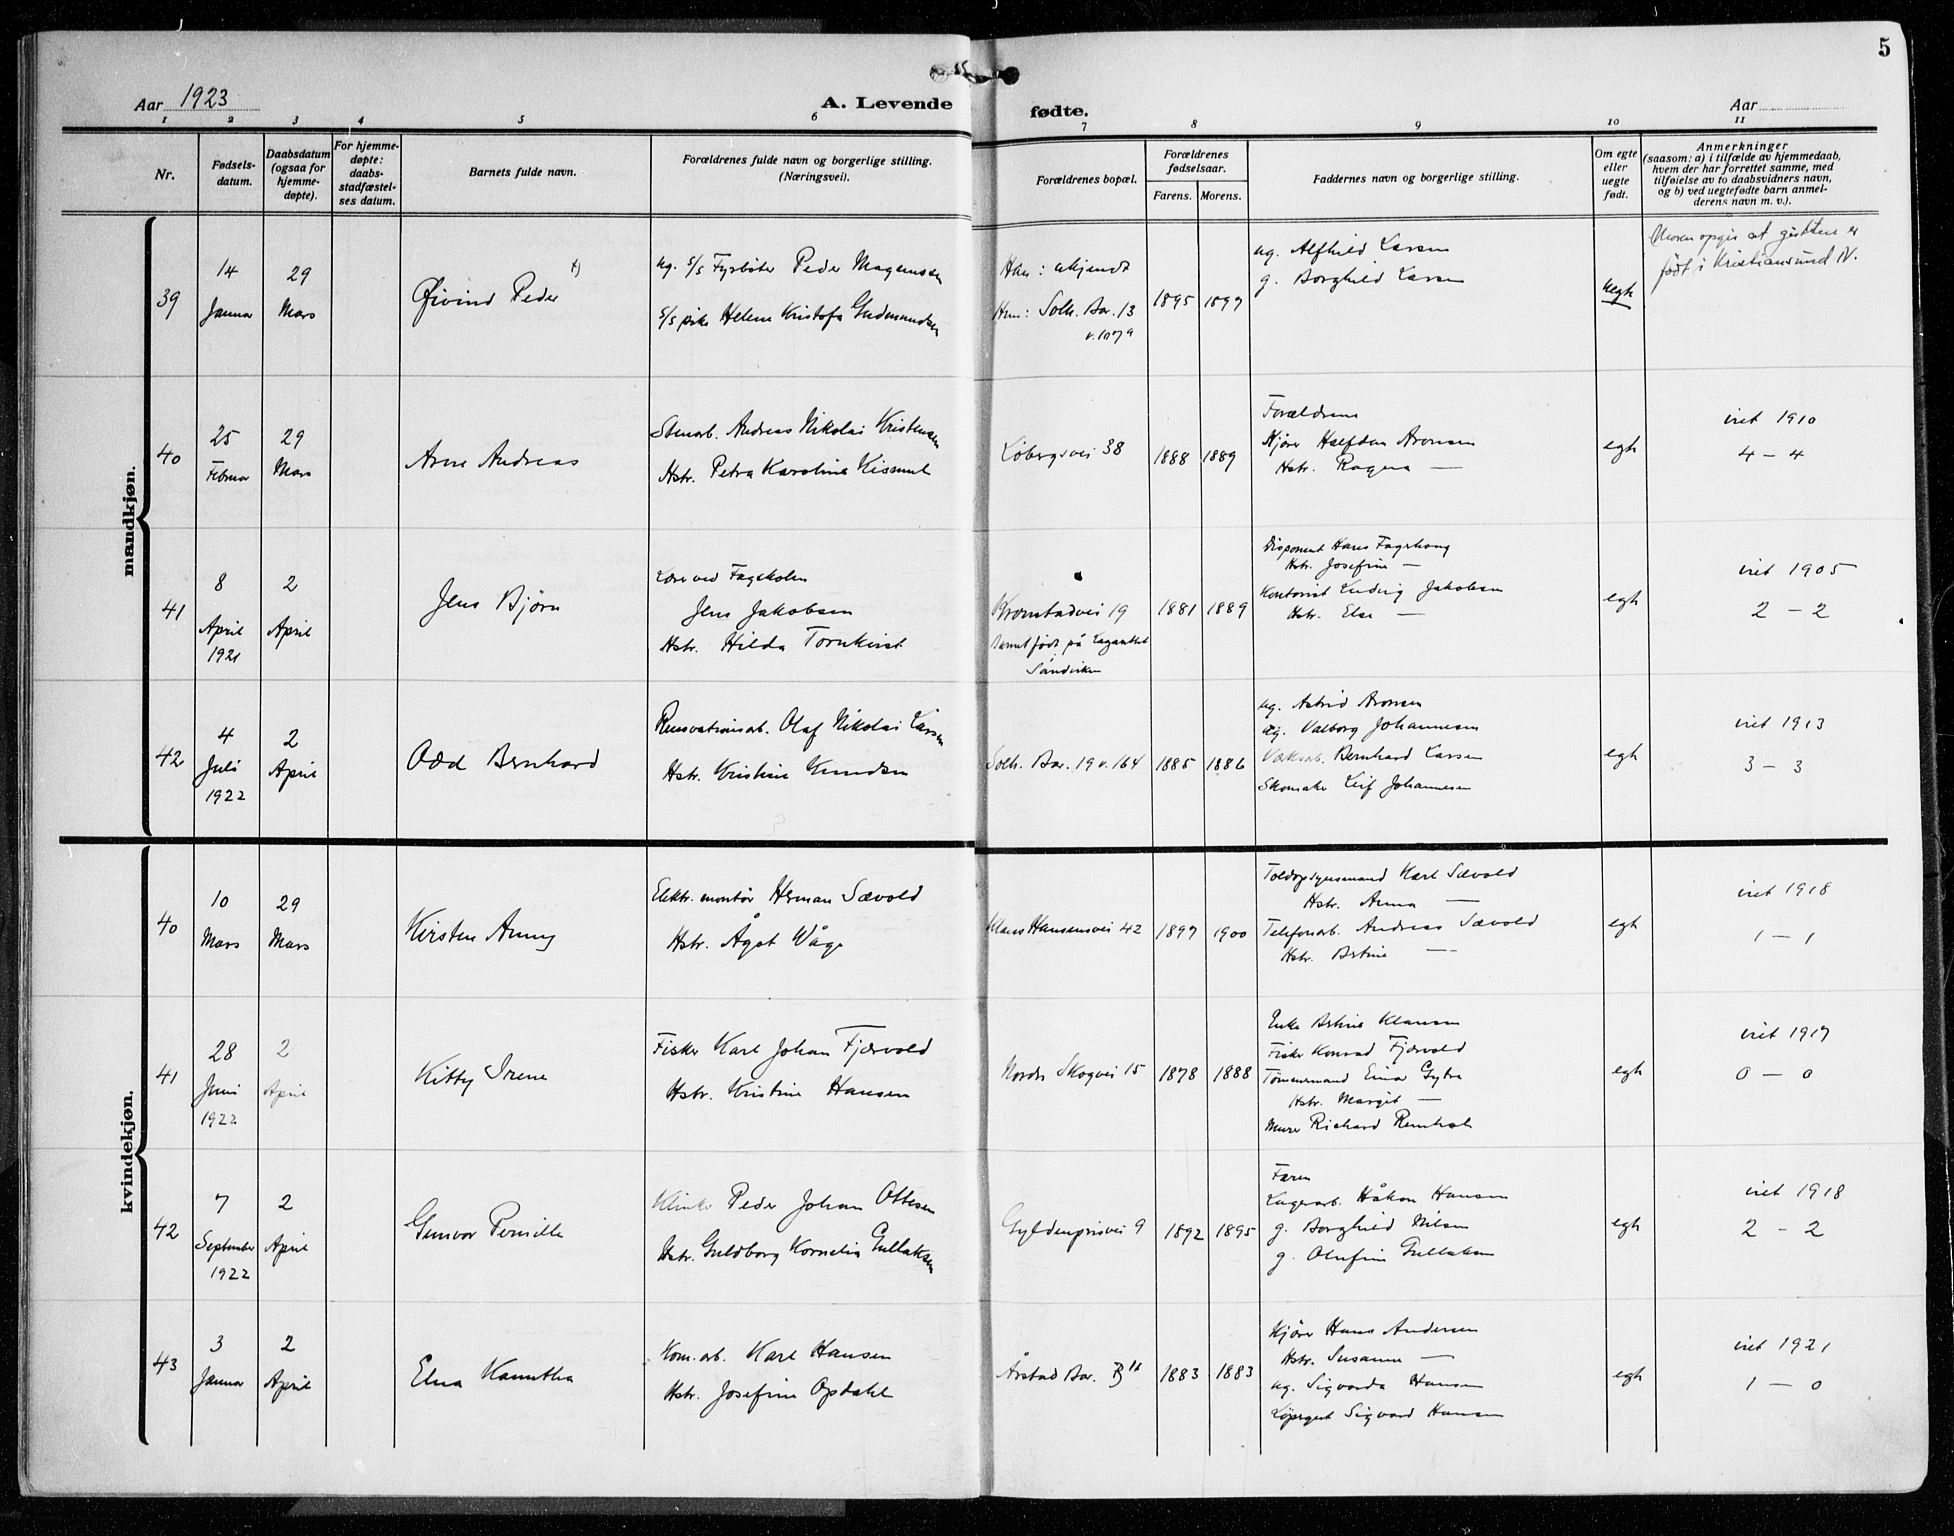 5
Aar 1923
A. Levende
fødte.
Aar
1 2 3 4 5 6 7 8 9 10 11
Nr.
Fødsels-
datum.
Daabsdatum
(ogsaa for
hjemme-
døpte).
For hjemme-
døpte:
daabs-
stadfæstel-
ses datum.
Barnets fulde navn.
Forældrenes fulde navn og borgerlige stilling.
(Næringsvei).
Forældrenes bopæl.
Forældrenes
fødselsaar.
Farens. Morens.
Faddernes navn og borgerlige stilling.
Om egte
eller
uegte
født.
Anmerkninger
(saasom: a) i tilfælde av hjemmedaab,
hvem der har forrettet samme, med
tilføielse av to daabsvidners navn,
og b) ved uegtefødte barn anmel-
derens navn m. v.).
mandkjøn.
39
14
Januar
29
Mars
Øivind Peder
ug. s/s Fyrbøter Peder Magnussen
s/s pike Helene Kristofa Gudmundsen
Han: ukjendt
Hun: Solh. Bar. 13
v. 107a
1895
1897
ug. Alfhild Larsen
g. Borghild Larsen
uegte
Moren opgir at gutten er
født i Kristiansund N.
40
25
Februar
29
Mars
Arne Andreas
Stenarb. Andreas Nikolai Kristensen
Hstr. Petra Karoline Kismul
Løbergsvei 38
1888
1889
Forældrene
Kjører Halfdan Aronsen
Hstr. Ragna —
egte
viet 1910
4 – 4
41
8
April
1921
2
April
Jens Bjørn
Lærer ved Fagskolen
Jens Jakobsen
Hstr. Hilda Tornkvist
Kronstadvei 19
Barnet født på
Sandviken
1881
1889
Disponent Hans Fagerhaug
Hstr. Josefine —
Kontorist Ludvig Jakobsen
Hstr. Else —
egte
viet 1905
2 – 2
42
4
Juli
1922
2
April
Odd Bernhard
Renovationsarb. Olaf Nikolai Larsen
Hstr. Kristine Knudsen
Solh. Bar. 19 v. 164
1885
1886
ug. Astrid Aronsen
ug. Valborg Johannesen
Bernhard Larsen
Skomaker Leif Johannesen
egte
viet 1913
3 – 3
kvindekjøn.
40
10
Mars
29
Mars
Kirsten Anny
Elektr. montør Herman Sævold
Hstr. Ågot Våge
Klaus Hansensvei 42
1897
1900
Toldopsynsmand Karl Sævold
Hstr. Anna —
Telefonarb. Andreas Sævold
Hstr. Bertine —
egte
viet 1918
1 – 1
41
28
Juni
1922
2
April
Kitty Irene
Fisker Karl Johan Fjærvold
Hstr. Kristine Hansen
Nordre Skogvei 15
1878
1888
Enke Bertine Klausen
Fisker Konrad Fjærvold
Tømmermand Einar
Hstr. Margit —
Murer Richard
egte
viet 1917
0 – 0
42
7
September
1922
2
April
Gunvor Pernille
Klinker Peder Johan Ottesen
Hstr. Guldborg Kornelia Gullaksen
Gyldenprisvei 9
1892
1895
Faren
Lagerarb. Håkon Hansen
g. Borghild Nilsen
g. Olufine Gullaksen
egte
viet 1918
2 – 2
43
3
Januar
2
April
Elna Kamitha
Kom. arb. Karl Hansen
Hstr. Josefine Opdahl
Årstad Bar. B 18
1883
1883
Kjører Hans Andersen
Hstr. Susanne —
ug. Sigvarda Hansen
Løpegut Sigvard Hansen
egte
viet 1921
1 – 0